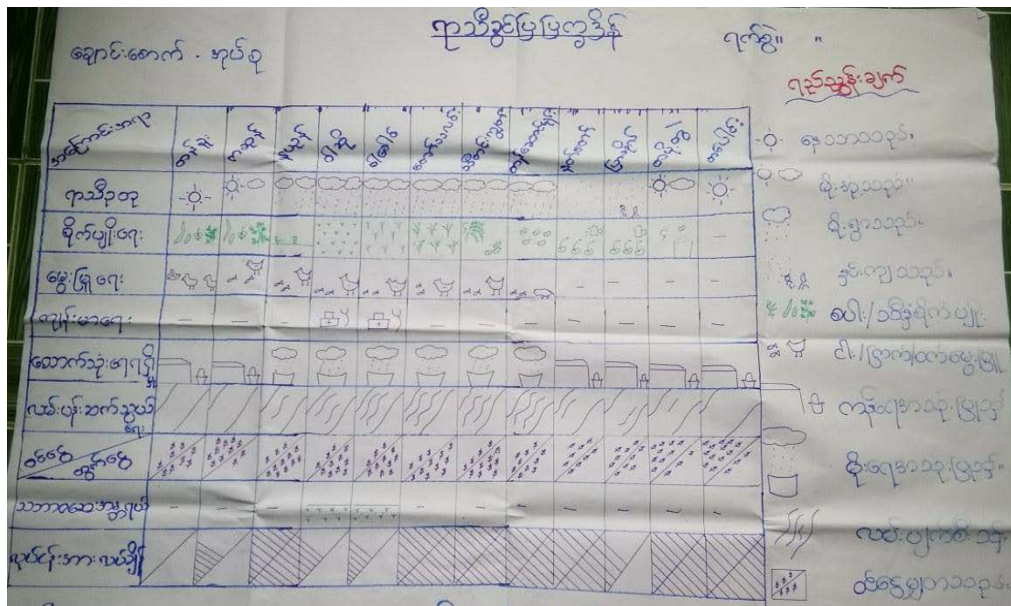 ရာသီခွင်ပြပြက္ခဒိန်
ချောင်းစောက် - အုပ်စု
ရက်စွဲ။ "
ရည်ညွှန်းချက်
အကြောင်းအရာ တန်ခူး ကဆုန် နယုန် ဝါဆို ဝါခေါင် တော်သလင်း သီတင်းကျွတ် တန်ဆောင်မုန်း နတ်တော် ပြာသို တပို့တွဲ တပေါင်း
ရာသီဥတု
စိုက်ပျိုးရေး
မွေးမြူရေး
ကျန်းမာရေး
သောက်သုံးရေရရှိမှု
လမ်းပန်းဆက်သွယ်ရေး
ဝင်ငွေ ထွက်ငွေ
သဘာဝဘေးအန္တရာယ်
လုပ်ငန်းအားလပ်ချိန်
နေသာသည်။
မိုးအုံ့သည်။
မိုးရွာသည်။
နှင်းကျသည်။
စပါး/သစ်သီးစိုက်ပျိုး
ငါး/ကြက်/ဝက်မွေးမြူ
မိုးရေအသုံးပြုသည်။
လမ်းပျက်စီးသည်
ဝင်ငွေများသည်။